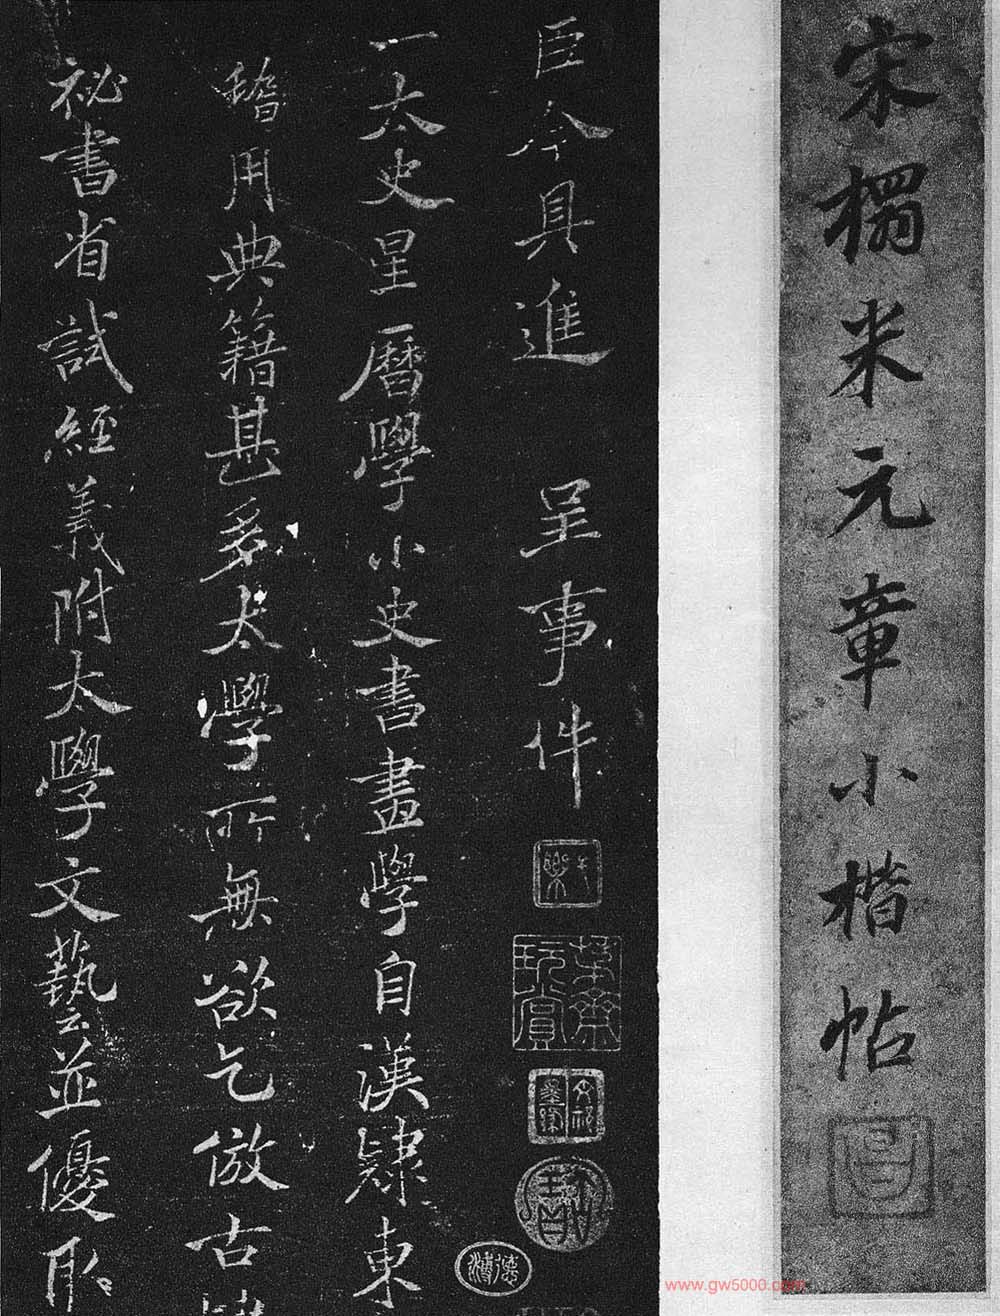 宋榻米元章小楷帖
臣今具進 呈事件
一太史星曆學小史書畫學自漢隸東
籍用典籍甚多太學所無欲乞倣古
祕書省試經義附太學文藝並優取
www.gw5000.com